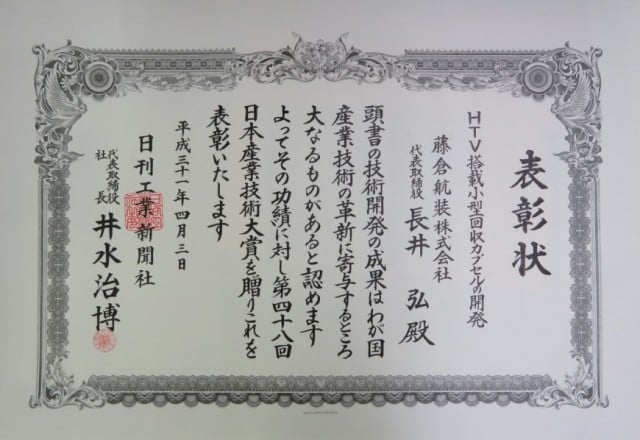 表彰状
HTV搭載小型回収カプセルの開発
藤倉航装株式会社
代表取締役 長井 弘 殿
頭書の技術開発の成果はわが国
産業技術の革新に寄与するところ
大なるものがあると認めます
よってその功績に対し第四十八回
日本産業技術大賞を贈りこれを
表彰いたします
平成三十一年四月三日
日刊工業新聞社
代表取締役社長 井水治博